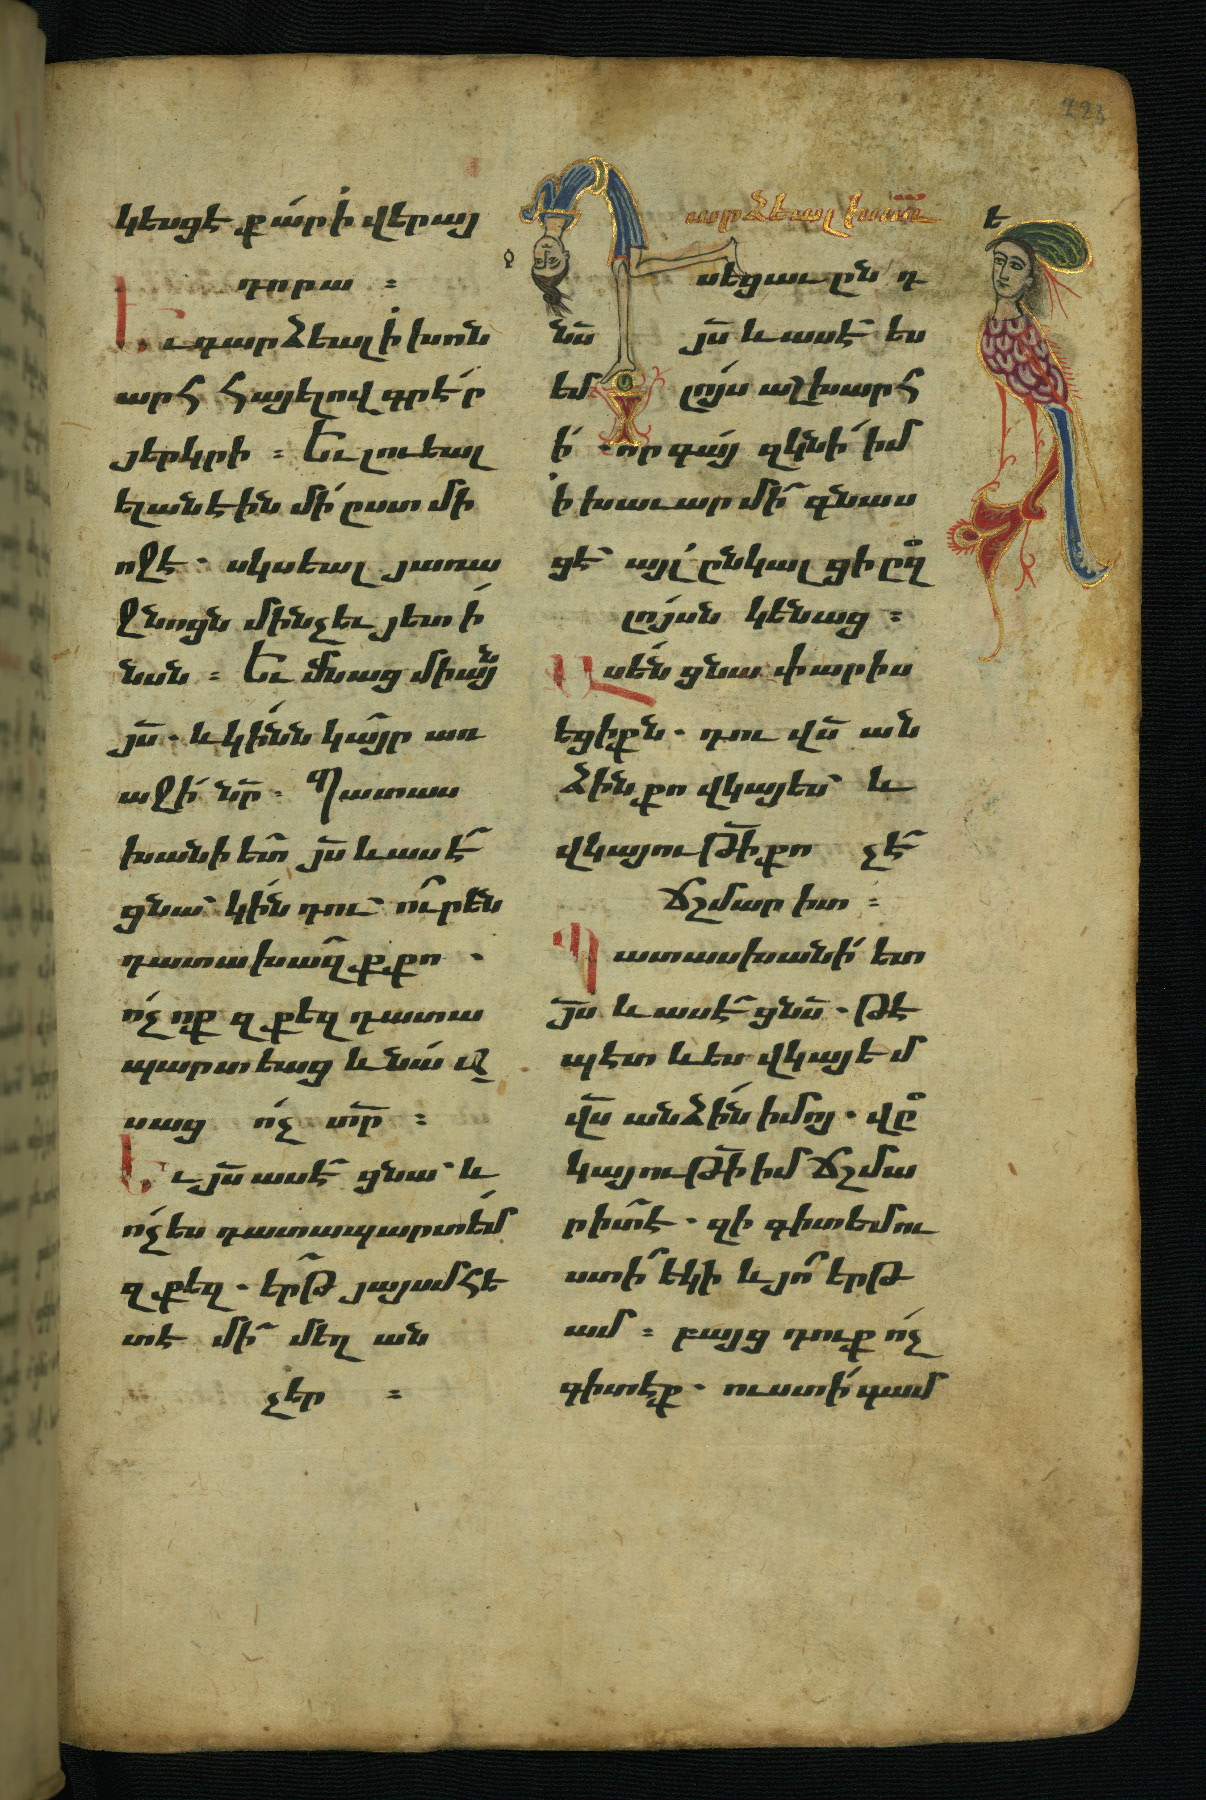 կեսցէ քարի վերայ
դորա ։
Եւ դարձեալ ի խոն
արհ հայելով գրէր
յերկրի ։ Եւ լուեալ
ելանէին մի ըստ մի
ոջէ . սկսեալ յառա
ջնոցն մինչեւ յետի
նսն ։ Եւ մնաց միայն
յս̅ . և կինն կայր առ
աջի նր̅ ։ Պատաս
խանի ետ յս̅ և ասէ
ցնա կին դու ուր են
դատախազքքո .
ոչ ոք զքեզ դատա
պարտեաց և նա ա
սաց ոչ տր̅ ։
Եւ յս̅ ասէ ցնա և
ոչ ես դատապարտեմ
զքեզ . երթ յայսմհե
տէ մի մեղ ան
չեր ։
արձեալ խաւ
սեցաւ ընդ
նս̅ յս̅ և ասէ ես
եմ լոյս աշխարհ
ի . որ գայ զկնի իմ
ի խաւար մի գնաս
ցէ այլ ընկալցի ըզ
լոյսն կենաց ։
Ասեն ցնա փարիս
եցիքն . դու վս̅ ան
ձին քո վկայես և
վկայութի̅ քո չէ
ճշմարիտ ։
Պատասխանի ետ
յս̅ և ասէ ցնս̅ . թէ
պէտ և ես վկայեմ
վս̅ անձին իմոյ . վը
կայութի̅ իմ ճշմա
րիտ է . զի գիտեմ ու
ստի եկի և յո երթ
ամ ։ բայց դուք ոչ
գիտէք . ուստի գամ
ե
223